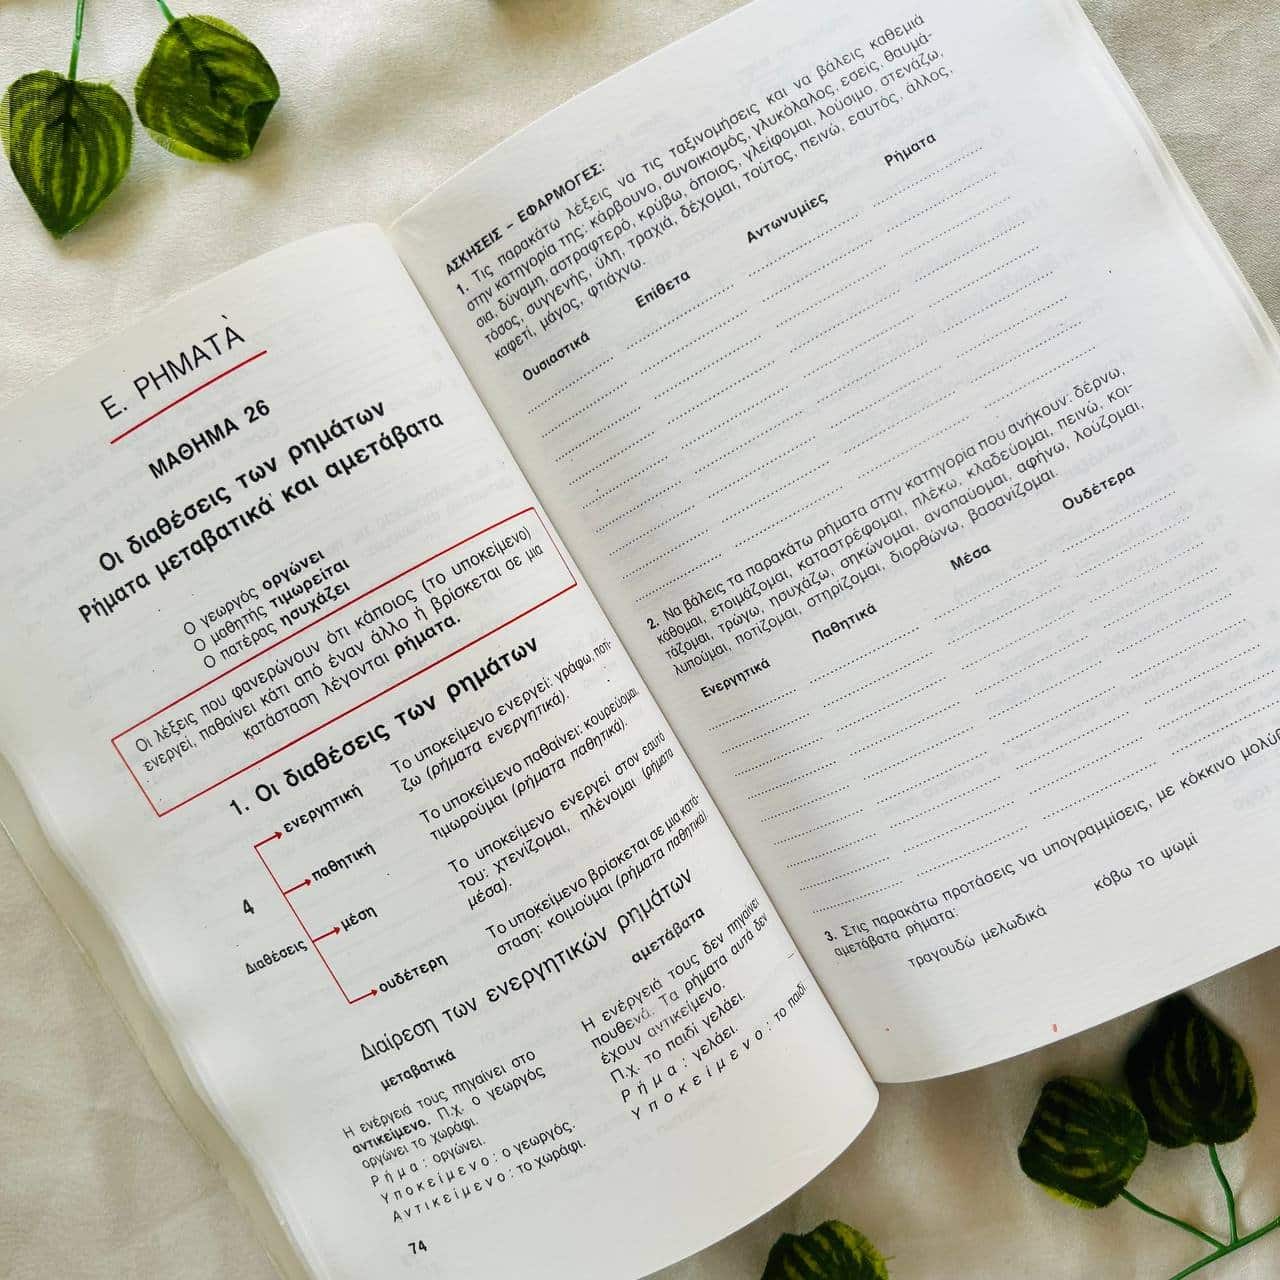 Ε. ΡΗΜΑΤΑ
ΜΑΘΗΜΑ 26
Οι διαθέσεις των ρημάτων
Ρήματα μεταβατικά και αμετάβατα
Ο γεωργός οργώνει
Ο μαθητής τιμωρείται
Ο πατέρας ησυχάζει
Οι λέξεις που φανερώνουν ότι κάποιος (το υποκείμενο)
ενεργεί, παθαίνει κάτι από έναν άλλο ή βρίσκεται σε μια
κατάσταση λέγονται ρήματα.
1. Οι διαθέσεις των ρημάτων
4
Διαθέσεις
ενεργητική
Το υποκείμενο ενεργεί: γράφω, ποτί-
ζω (ρήματα ενεργητικά).
παθητική
Το υποκείμενο παθαίνει: κουρεύομαι,
τιμωρούμαι (ρήματα παθητικά).
μέση
Το υποκείμενο ενεργεί στον εαυτό
του: χτενίζομαι, πλένομαι (ρήματα
μέσα).
ουδέτερη
Το υποκείμενο βρίσκεται σε μια κατά-
σταση: κοιμούμαι (ρήματα παθητικά).
Διαίρεση των ενεργητικών ρημάτων
μεταβατικά
Η ενέργειά τους πηγαίνει στο
αντικείμενο. Π.χ. ο γεωργός
οργώνει το χωράφι.
Ρήμα: οργώνει.
Υποκείμενο: ο γεωργός.
Αντικείμενο: το χωράφι.
αμετάβατα
Η ενέργειά τους δεν πηγαίνει
πουθενά. Τα ρήματα αυτά δεν
έχουν αντικείμενο.
Π.χ. το παιδί γελάει.
Ρήμα: γελάει.
Υποκείμενο: το παιδί
74
ΑΣΚΗΣΕΙΣ – ΕΦΑΡΜΟΓΕΣ:
1. Τις παρακάτω λέξεις να τις ταξινομήσεις και να βάλεις καθεμιά
στην κατηγορία της: κάρβουνο, συνοικισμός, γλυκόλαλος, εσείς, θαυμά-
σια, δύναμη, αστραφτερό, κρύβω, όποιος, γλείφομαι, λούσιμο, στενάζω,
τόσος, συγγενής, ύλη, τραχιά, δέχομαι, τούτος, πεινώ, εαυτός, άλλος,
καφετί, μάγος, φτιάχνω.
Ουσιαστικά Επίθετα Αντωνυμίες Ρήματα
2. Να βάλεις τα παρακάτω ρήματα στην κατηγορία που ανήκουν: δέρνω,
κάθομαι, ετοιμάζομαι, καταστρέφομαι, πλέκω, κλαδεύομαι, πεινώ, κοι-
τάζομαι, τρώγω, ησυχάζω, σηκώνομαι, αναπαύομαι, αφήνω, λούζομαι,
λυπούμαι, ποτίζομαι, στηρίζομαι, διορθώνω, βασανίζομαι.
Ενεργητικά Παθητικά Μέσα Ουδέτερα
3. Στις παρακάτω προτάσεις να υπογραμμίσεις, με κόκκινο
αμετάβατα ρήματα:
τραγουδώ μελωδικά κόβω το ψωμί